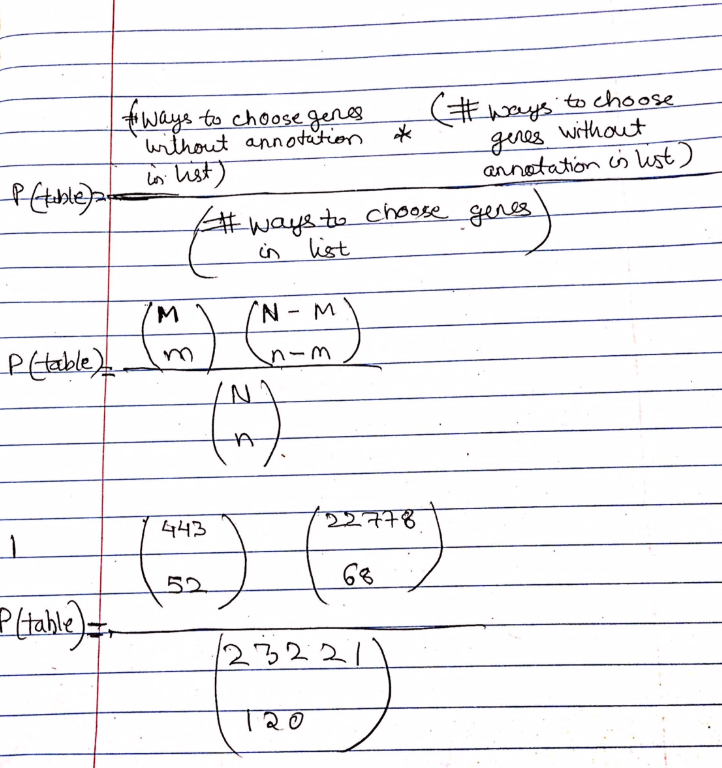 (# ways to choose genes without annotation in list) * (# ways to choose genes without annotation in list)
P(table)=
(# ways to choose genes in list)
(M m) (N - M n - m)
P(table)=
(N n).
1
(443 52) (22778 68)
P(table)=
(23221 120)